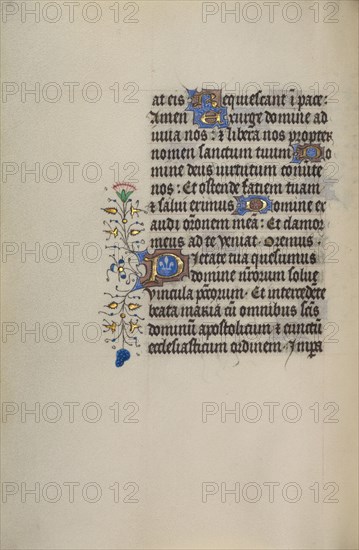 at eis Requiescant ī pace:
Amen Exurge domine ad
iuva nos: et libera nos propter
nomen sanctum tuum Do
mine deus virtutum convte
nos: Et ostende faciem tuam
et salvi erimus Domine ex
audi orōnem meā: Et clamor
meus ad te veniat. Oremus.
Pietate tua quesumus
domine nrōrum solve
vincula pctōrum. Et intercedēte
beata maria cū omnibus scīs
dominū apostolicum et cunctū
ecclesiasticum ordinem. Impa
PHOTO 12